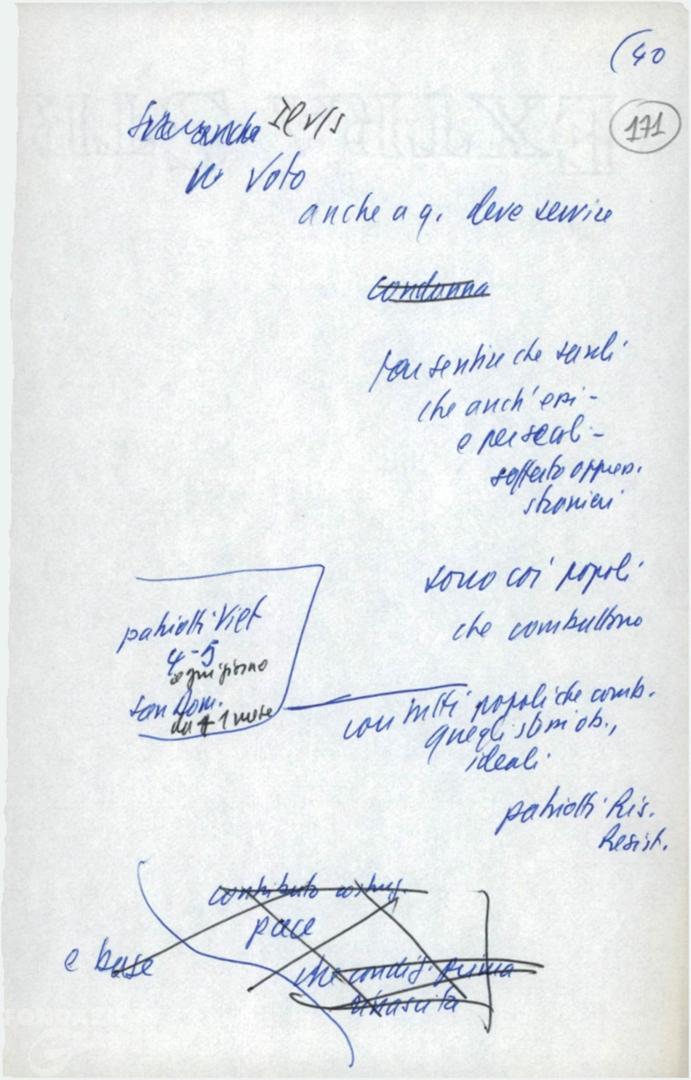 (40
171
il voto
anche a q. deve servire
condanna
sentire che sardi
che anch'essi -
e per secoli -
sofferto oppress.
stranieri
sono coi popoli
che combattono
patrioti Viet
4-5
ogni giorno
San Dom.
da 1 mese
con tutti popoli che comb.
quegli stessi ob.,
ideali
patrioti Ris.
Resist.
contributo
pace
e base
che condiz. prima
rinascita